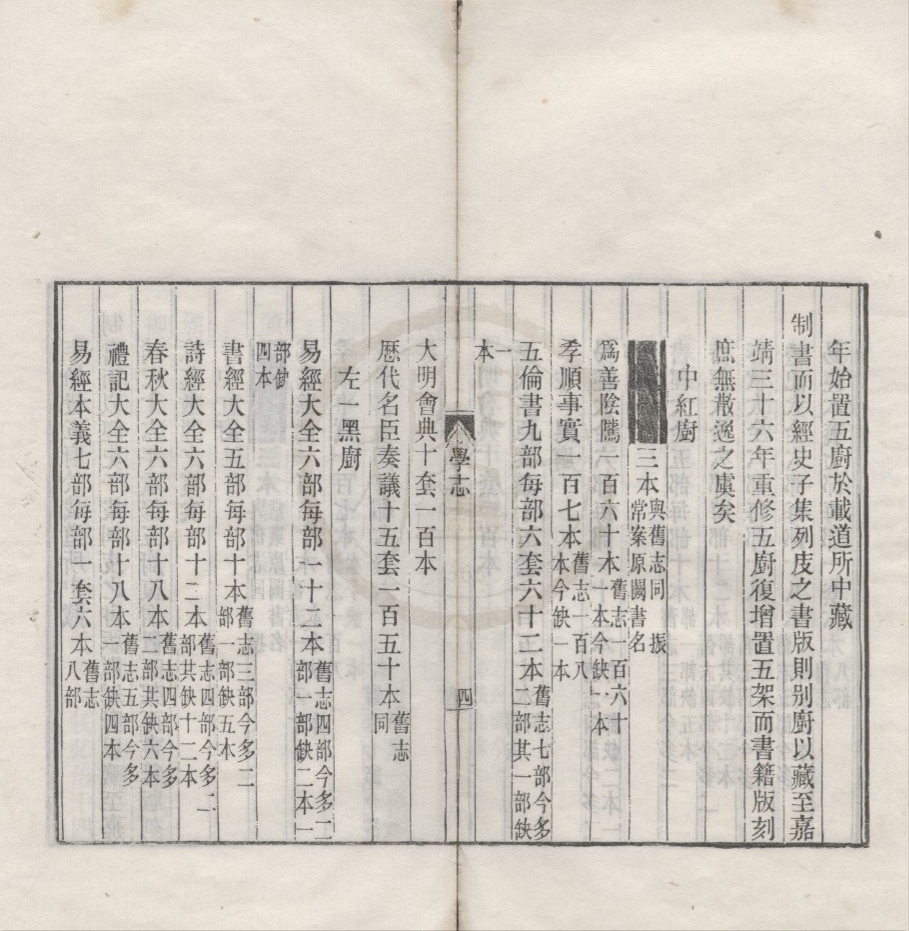 年始置五廚於載道所中藏
制書而以經史子集列庋之書版則别廚以藏至嘉
靖三十六年重修五廚復增置五架而書籍版刻
庶無散逸之虞矣
中紅廚
三本與舊志同 振常案原闕書名
爲善陰隲一百六十本舊志一百六十一本今缺一本
孝順事實一百七本舊志一百八本今缺一本
五倫書九部每部六套六十二本舊志七部今多二部其一部缺
一本
學志
四
大明會典十套一百本
歷代名臣奏議十五套一百五十本舊志同
左一黑廚
易經大全六部每部一十二本舊志四部今多二部一部缺二本一
部缺四本
書經大全五部每部十本舊志三部今多二部一部缺五本
詩經大全六部每部十二本舊志四部今多二部共缺十二本
春秋大全六部每部十八本舊志四部今多二部共缺六本
禮記大全六部每部十八本舊志五部今多一部缺四本
易經本義七部每部一套六本舊志八部